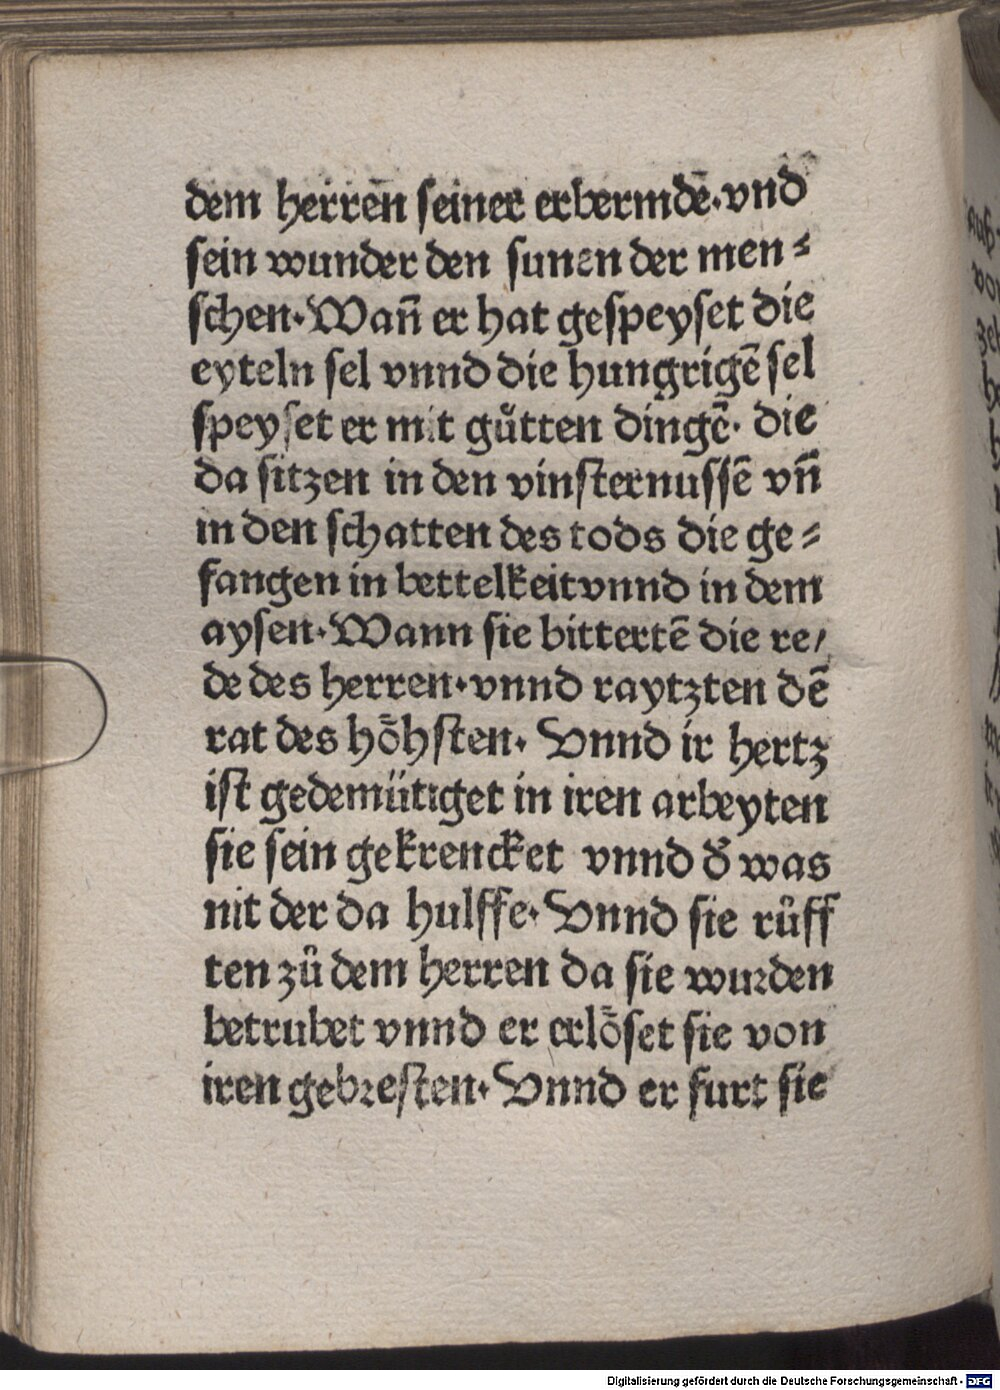 dem herren seiner erbermdē·vnd
sein wunder den sunen der men⸗
schen·Wañ er hat gespeyset die
eyteln sel vnnd die hungrigē sel
speyset er mit gůtten dingē· die
da sitzen in den vinsternussē vñ
in den schatten des tods die ge⸗
fangen in bettelkeit vnnd in dem
aysen·Wann sie bittertē die re/
de des herren·vnnd raytzten dē
rat des hőhsten· Vnnd ir hertz
ist gedemütiget in iren arbeyten
sie sein gekrencket vnnd d̕ was
nit der da hulffe·Vnnd sie růff
ten zů dem herren da sie wurden
betrubet vnnd er erlőset sie von
iren gebresten·Vnnd er furt sie
Digitalisierung gefördert durch die Deutsche Forschungsgemeinschaft - DFG